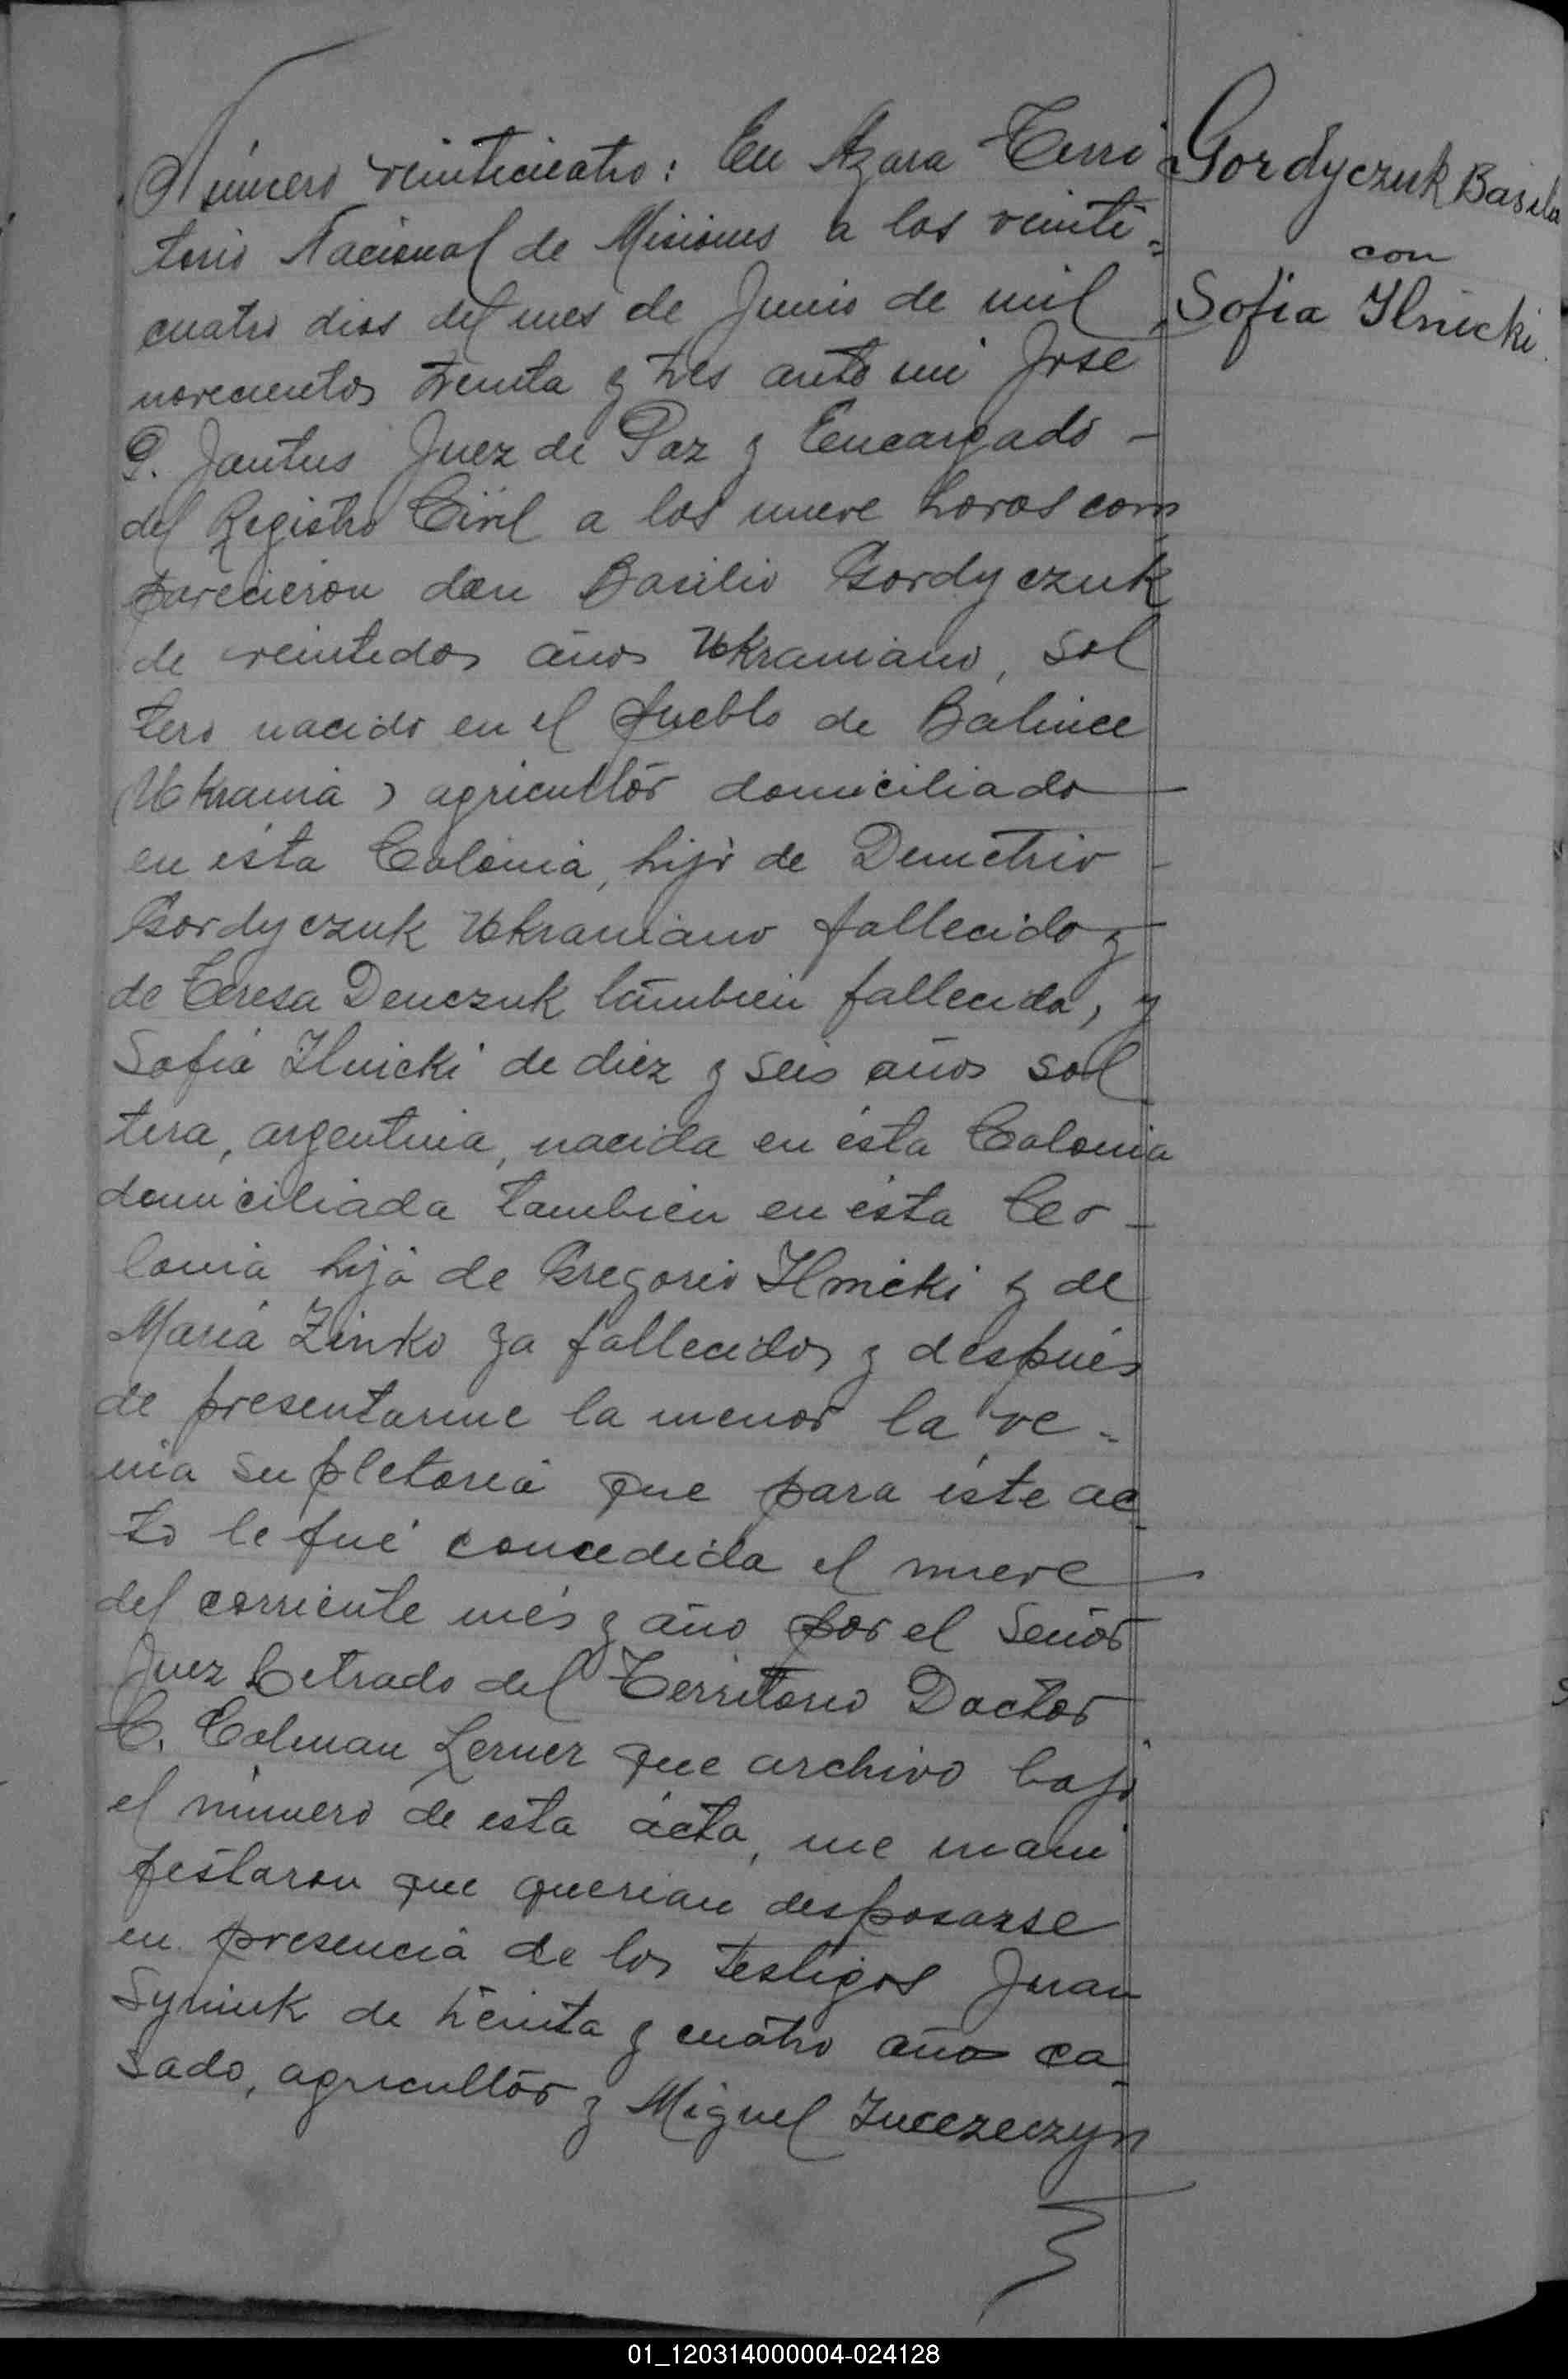 Número veinticuatro: En Azara Terri
torio Nacional de Misiones a los veinti=
cuatro dias del mes de Junio de mil
novecientos treinta y tres ante mi Jose
G. Jantus Juez de Paz y Encargado -
del Registro Civil a las nueve horas com
parecieron don Basilio Gordyczuk
de veintedos años Ukraniano, sol
tero nacido en el pueblo de Balince
(Ukrania) agricultor domiciliado
en ésta Colonia, hijo de Demetrio -
Gordyczuk Ukraniano fallecido y
de Teresa Denczuk tambien fallecida, y
Sofia Ilnicki de diez y seis años sol
tera, argentina, nacida en ésta Colonia
domiciliada tambien en ésta Co-
lonia hija de Gregorio Ilnicki y de
Maria Zinko ya fallecidos y después
de presentarme la menor la ve=
nia supletoria que para éste ac
to le fué concedida el nueve
del corriente més y año por el Señor
Juez Letrado del Territorio Doctor
C. Colman Lerner que archivo bajo
el número de esta acta, me mani
festaron que querian desposarse
en presencia de los testigos Juan
Syniuk de treinta y cuatro años ca
sado, agricultor y Miguel
Gordyczuk Basilo
con
Sofia Ilnicki.
01_120314000004-024128